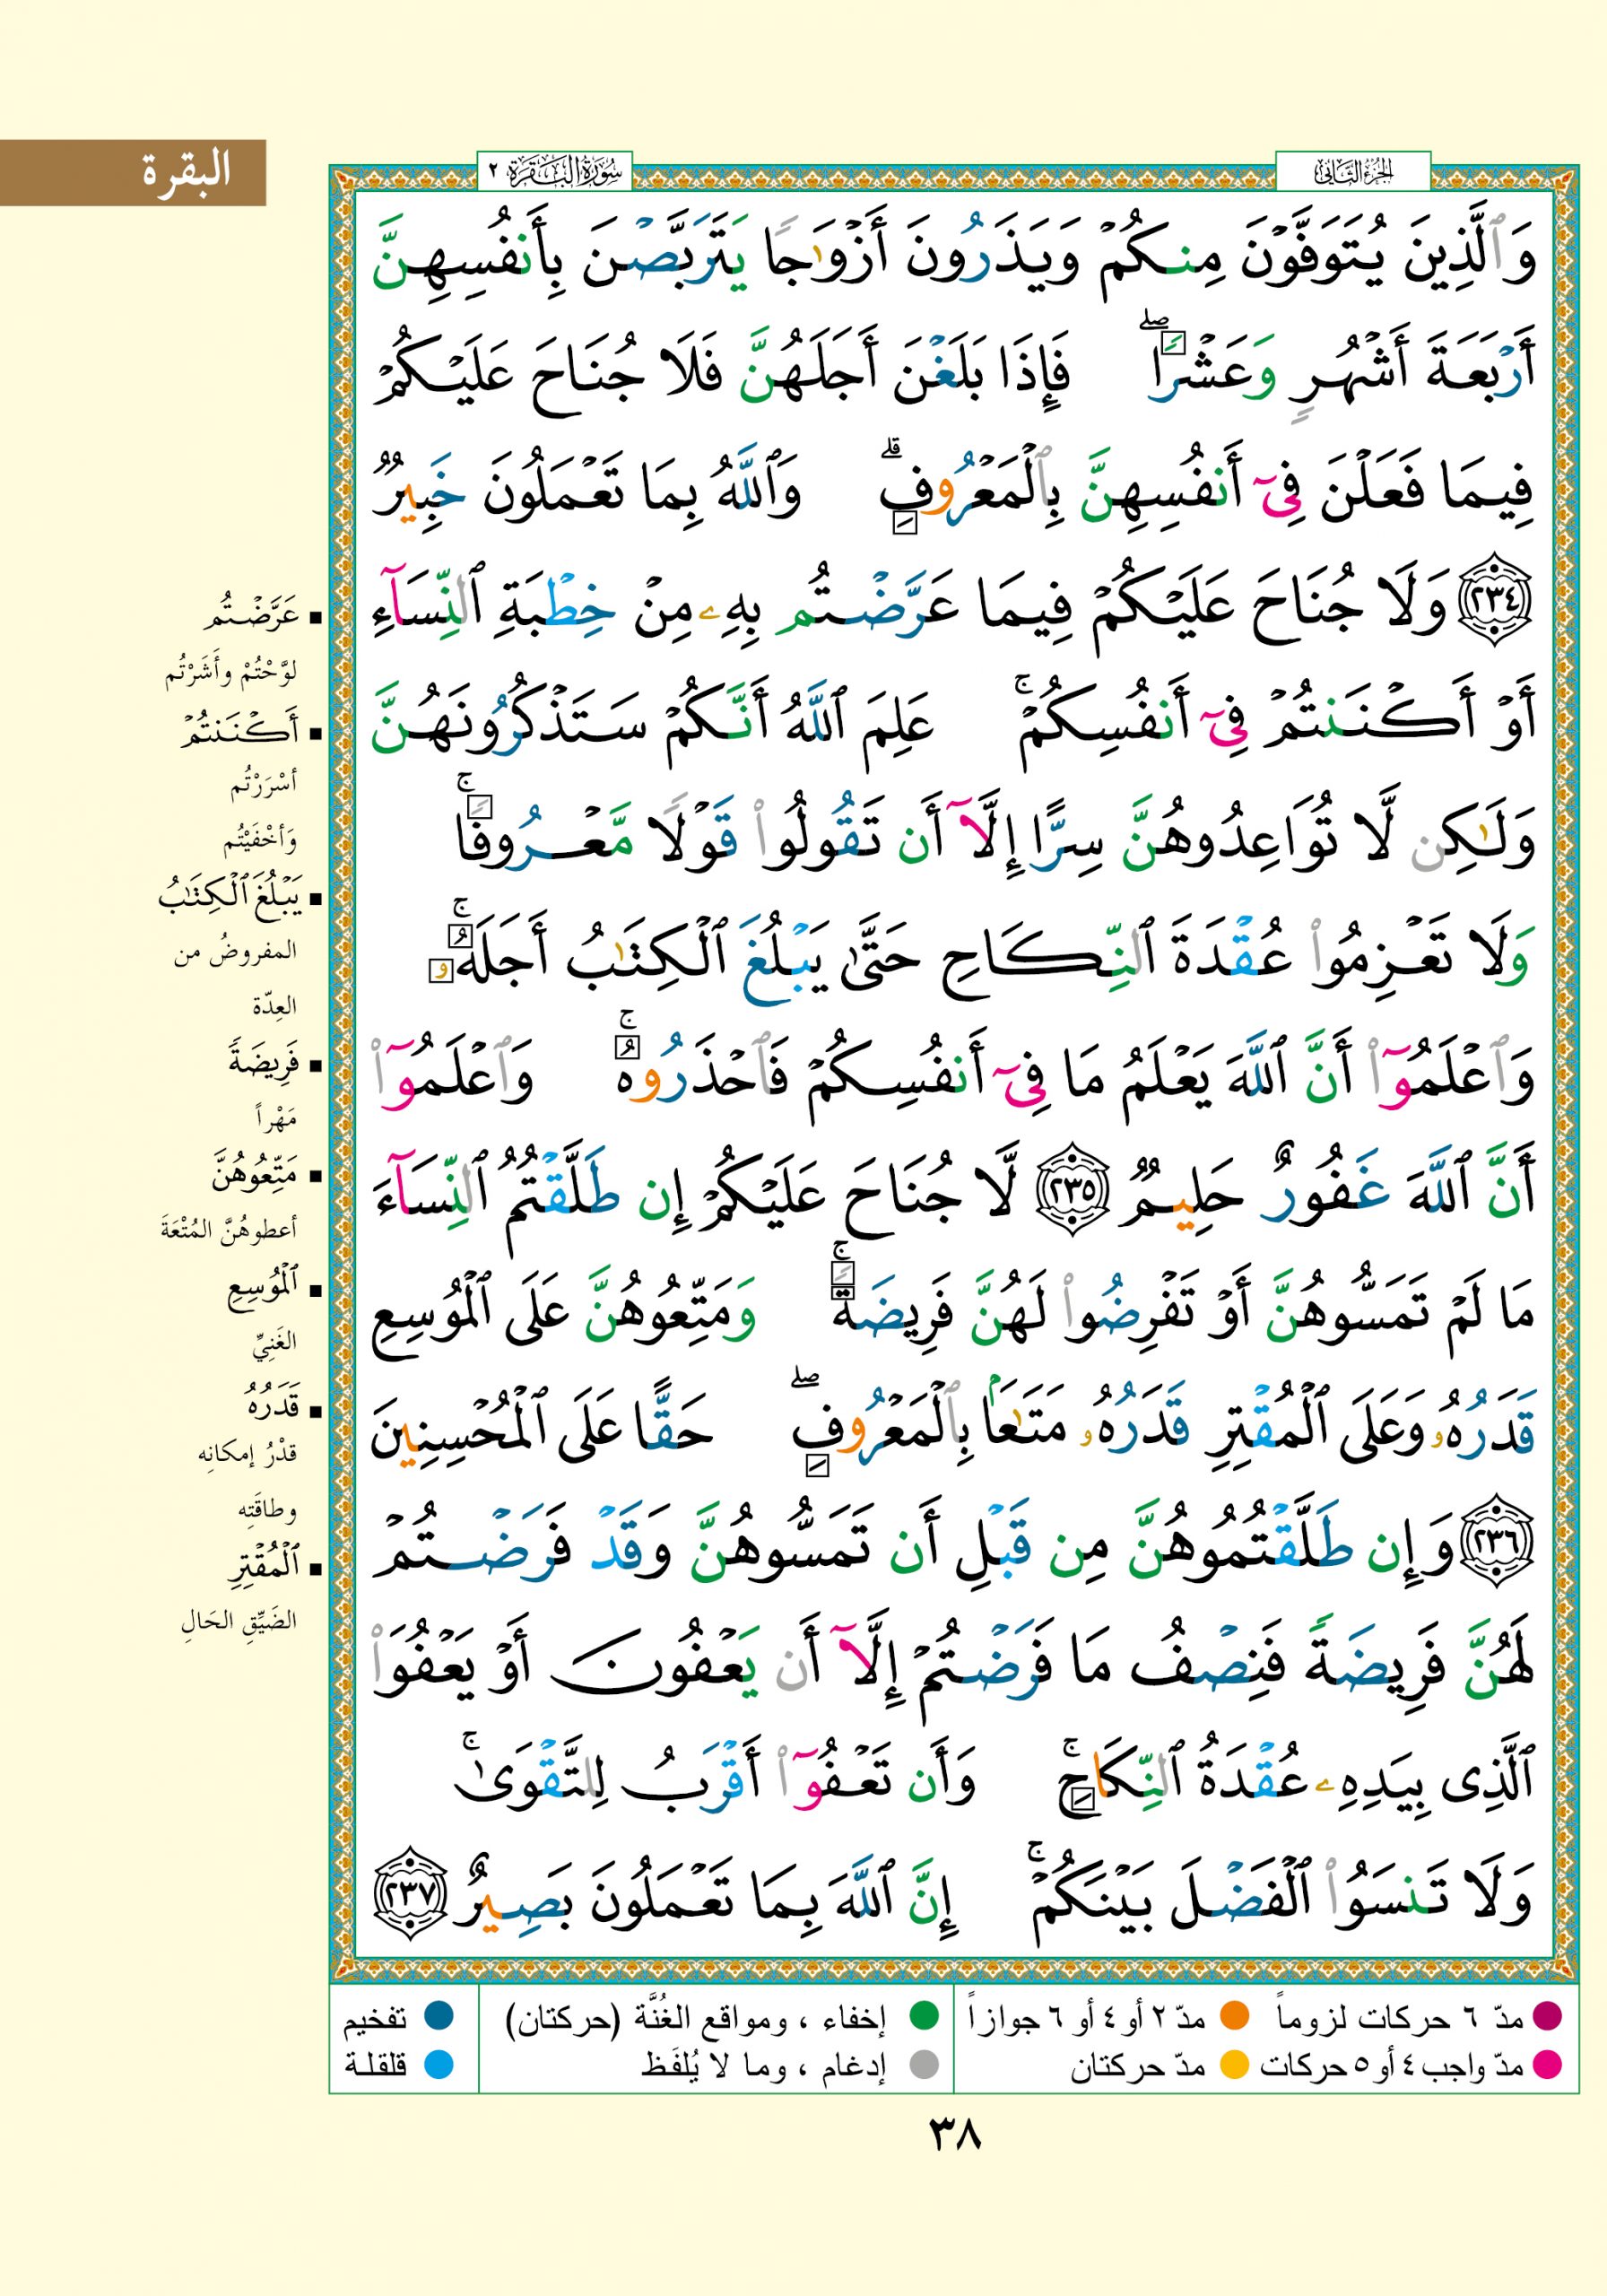 البقرة
الجزء الثاني
سورة البقرة ٢
وَٱلَّذِينَ يُتَوَفَّوْنَ مِنكُمْ وَيَذَرُونَ أَزْوَٰجًا يَتَرَبَّصْنَ بِأَنفُسِهِنَّ
أَرْبَعَةَ أَشْهُرٍ وَعَشْرًا ۖ فَإِذَا بَلَغْنَ أَجَلَهُنَّ فَلَا جُنَاحَ عَلَيْكُمْ
فِيمَا فَعَلْنَ فِىٓ أَنفُسِهِنَّ بِٱلْمَعْرُوفِ ۗ وَٱللَّهُ بِمَا تَعْمَلُونَ خَبِيرٌ
٢٣٤ وَلَا جُنَاحَ عَلَيْكُمْ فِيمَا عَرَّضْتُم بِهِۦ مِنْ خِطْبَةِ ٱلنِّسَآءِ
أَوْ أَكْنَنتُمْ فِىٓ أَنفُسِكُمْ ۚ عَلِمَ ٱللَّهُ أَنَّكُمْ سَتَذْكُرُونَهُنَّ
وَلَٰكِن لَّا تُوَاعِدُوهُنَّ سِرًّا إِلَّآ أَن تَقُولُوا۟ قَوْلًا مَّعْرُوفًا ۚ
وَلَا تَعْزِمُوا۟ عُقْدَةَ ٱلنِّكَاحِ حَتَّىٰ يَبْلُغَ ٱلْكِتَٰبُ أَجَلَهُۥ ۚ
وَٱعْلَمُوٓا۟ أَنَّ ٱللَّهَ يَعْلَمُ مَا فِىٓ أَنفُسِكُمْ فَٱحْذَرُوهُ ۚ وَٱعْلَمُوٓا۟
أَنَّ ٱللَّهَ غَفُورٌ حَلِيمٌ ٢٣٥ لَّا جُنَاحَ عَلَيْكُمْ إِن طَلَّقْتُمُ ٱلنِّسَآءَ
مَا لَمْ تَمَسُّوهُنَّ أَوْ تَفْرِضُوا۟ لَهُنَّ فَرِيضَةً ۚ وَمَتِّعُوهُنَّ عَلَى ٱلْمُوسِعِ
قَدَرُهُۥ وَعَلَى ٱلْمُقْتِرِ قَدَرُهُۥ مَتَٰعًۢا بِٱلْمَعْرُوفِ ۖ حَقًّا عَلَى ٱلْمُحْسِنِينَ
٢٣٦ وَإِن طَلَّقْتُمُوهُنَّ مِن قَبْلِ أَن تَمَسُّوهُنَّ وَقَدْ فَرَضْتُمْ
لَهُنَّ فَرِيضَةً فَنِصْفُ مَا فَرَضْتُمْ إِلَّآ أَن يَعْفُونَ أَوْ يَعْفُوَا۟
ٱلَّذِى بِيَدِهِۦ عُقْدَةُ ٱلنِّكَاحِ ۚ وَأَن تَعْفُوٓا۟ أَقْرَبُ لِلتَّقْوَىٰ ۚ
وَلَا تَنسَوُا۟ ٱلْفَضْلَ بَيْنَكُمْ ۚ إِنَّ ٱللَّهَ بِمَا تَعْمَلُونَ بَصِيرٌ ٢٣٧
عَرَّضْتُم
لوَّحْتُمْ وأَشَرْتُم
أَكْنَنتُمْ
أسْرَرْتُم
وَأخْفَيْتُم
يَبْلُغَ ٱلْكِتَٰبُ
المفروضُ من
العِدّة
فَرِيضَةً
مَهْراً
مَتِّعُوهُنَّ
أعطوهُنَّ المُتْعَةَ
ٱلْمُوسِعِ
الغَنِيِّ
قَدَرُهُ
قدْرُ إمكانِه
وطاقَتِه
ٱلْمُقْتِرِ
الضَيِّقِ الحَالِ
مدّ ٦ حركات لزوماً مدّ ٢ أو ٤ أو ٦ جوازاً إخفاء ، ومواقع الغُنَّة (حركتان) تفخيم
مدّ واجب ٤ أو ٥ حركات مدّ حركتان إدغام ، وما لا يُلفَظ قلقلة
٣٨